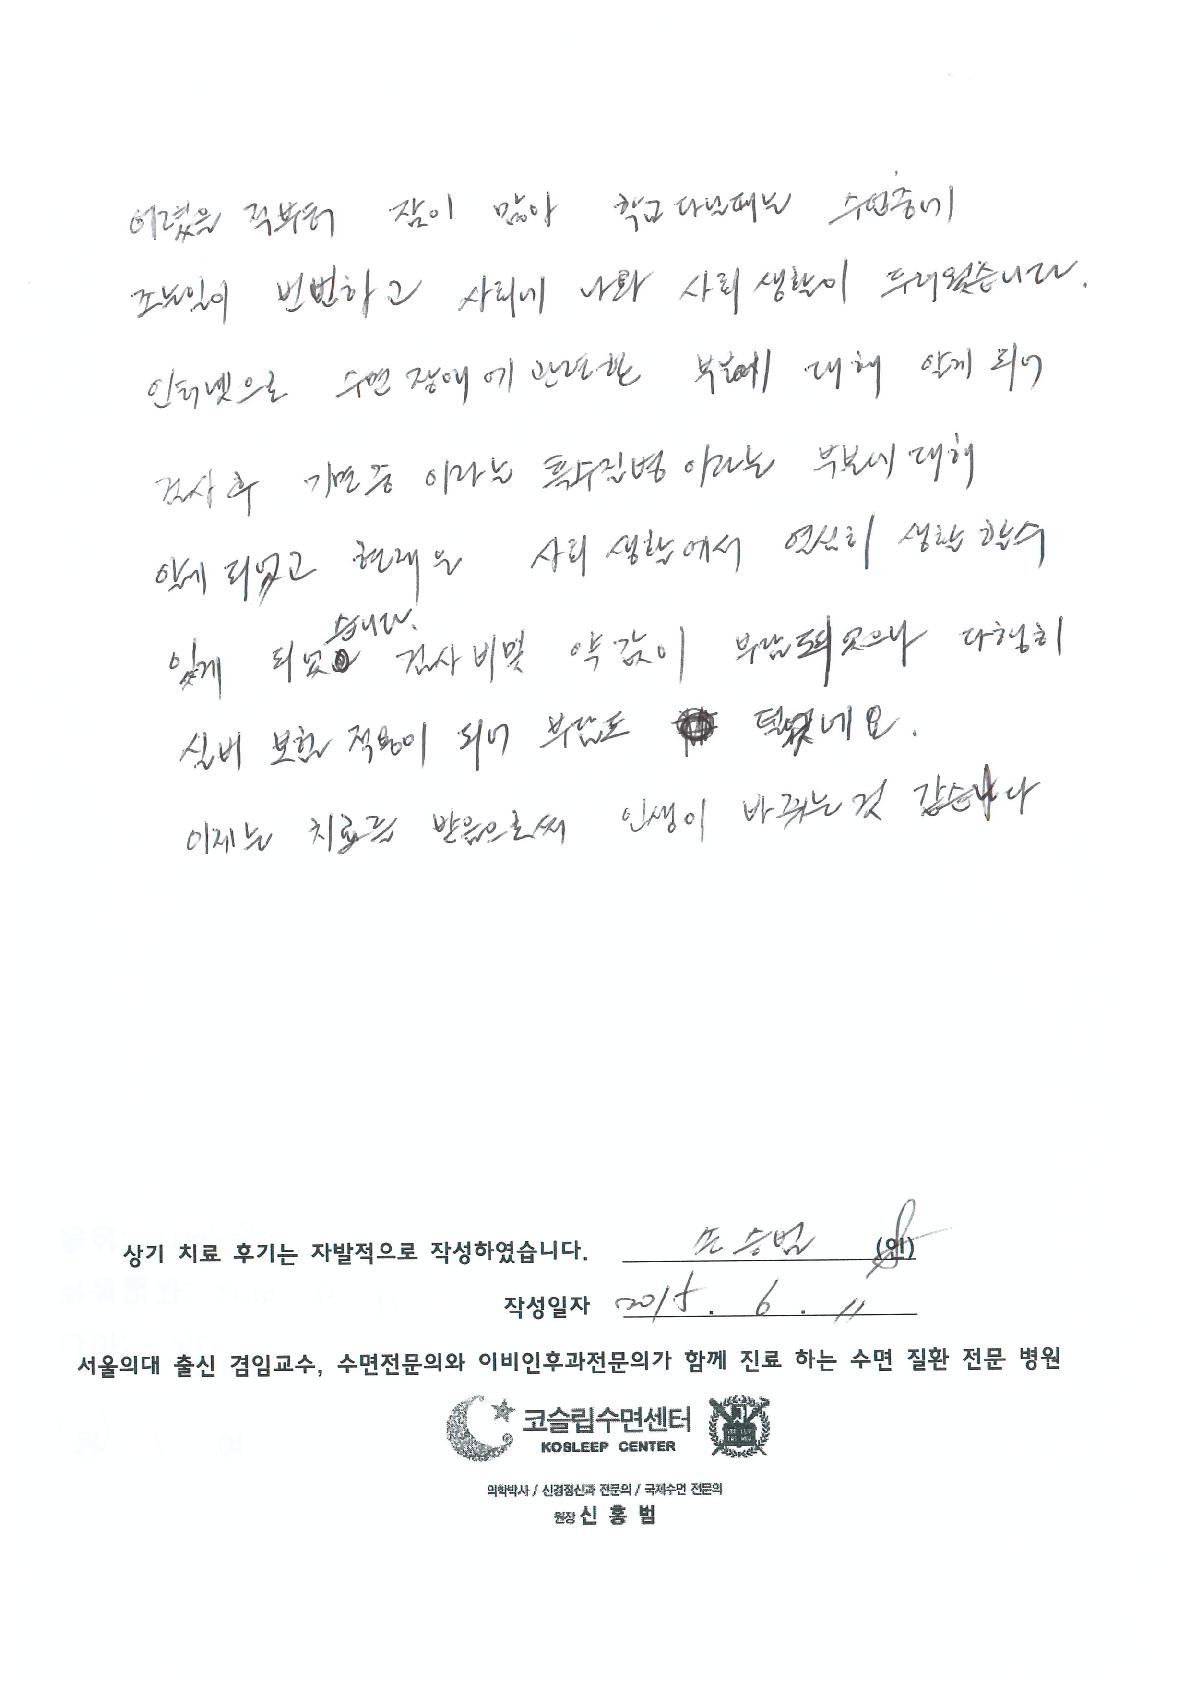 어렸을 적부터 잠이 많아 학교 다닐때는 수업중에
조는일이 빈번하고 사회에 나와 사회 생활이 두려웠습니다.
인터넷으로 수면 장애에 관련한 부분에 대해 알게 되어
검사 후 기면증 이라는 특수질병 이라는 부분에 대해
알게 되었고 현재는 사회 생활에서 열심히 생활 할수
있게 되었습니다. 검사비및 약값이 부담되었으나 다행히
실비 보험 적용이 되어 부담도 덜었네요.
이제는 치료를 받음으로써 인생이 바뀌는것 같습니다
상기 치료 후기는 자발적으로 작성하였습니다. 손승범 (인)
작성일자 2015. 6. 11
서울의대 출신 겸임교수, 수면전문의와 이비인후과전문의가 함께 진료 하는 수면 질환 전문 병원
코슬립수면센터
KOSLEEP CENTER
의학박사 / 신경정신과 전문의 / 국제수면 전문의
원장 신 홍 범